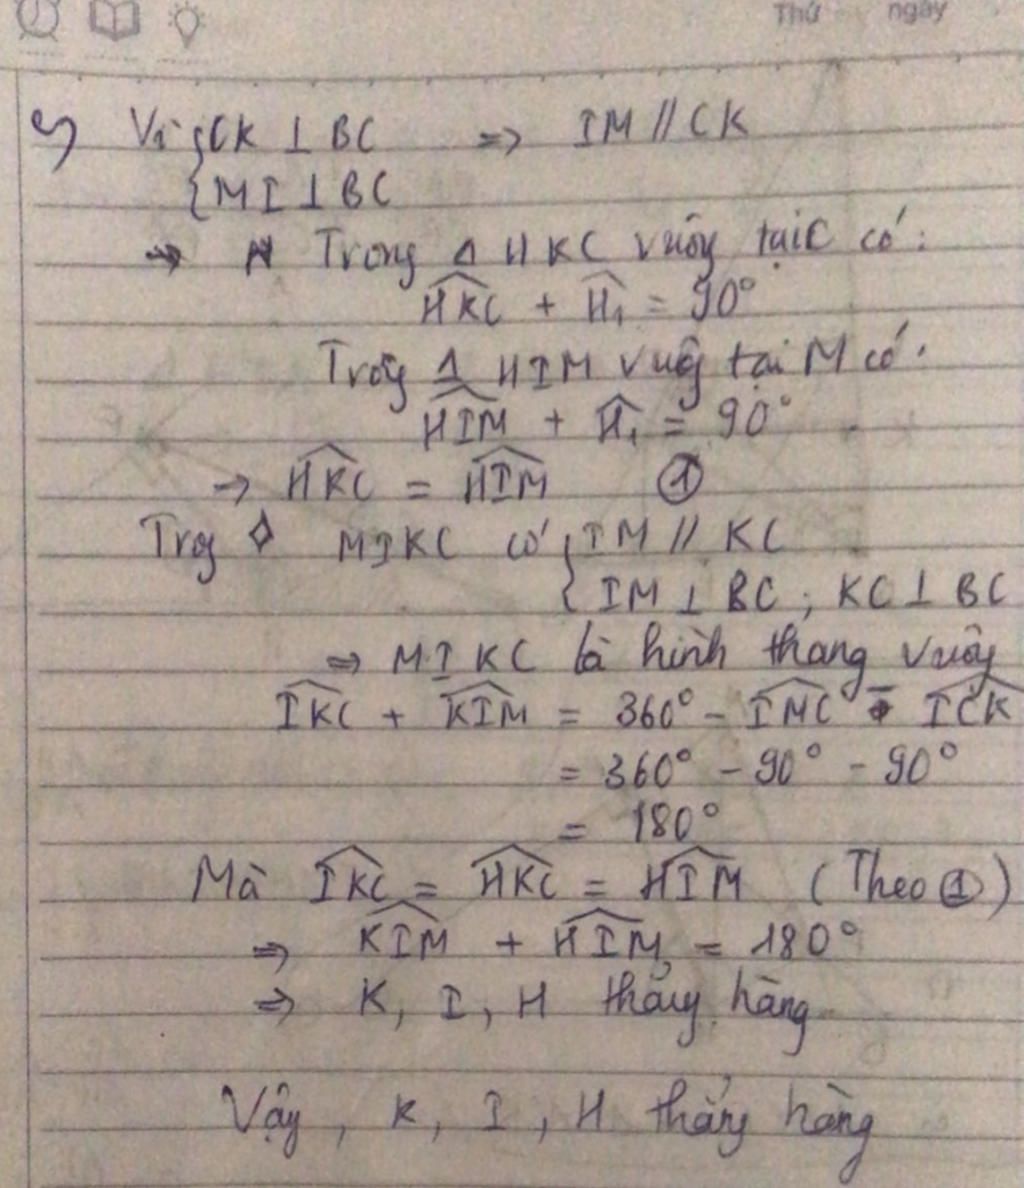 Thứ ngày
c) Vì {CK ⊥ BC ⇒ IM // CK
{MI ⊥ BC
⇒ Trong Δ HKC vuông tại C có:
HKC + H₁ = 90°
Trong Δ HIM vuông tại M có:
HIM + H₁ = 90°
→ HKC = HIM ①
Trong ◊ MIKC có {IM // KC
{IM ⊥ BC; KC ⊥ BC
⇒ MIKC là hình thang vuông
IKC + KIM = 360° - IMC - ICK
= 360° - 90° - 90°
= 180°
Mà IKC = HKC = HIM (Theo ①)
⇒ KIM + HIM = 180°
⇒ K, I, H thẳng hàng
Vậy, K, I, H thẳng hàng